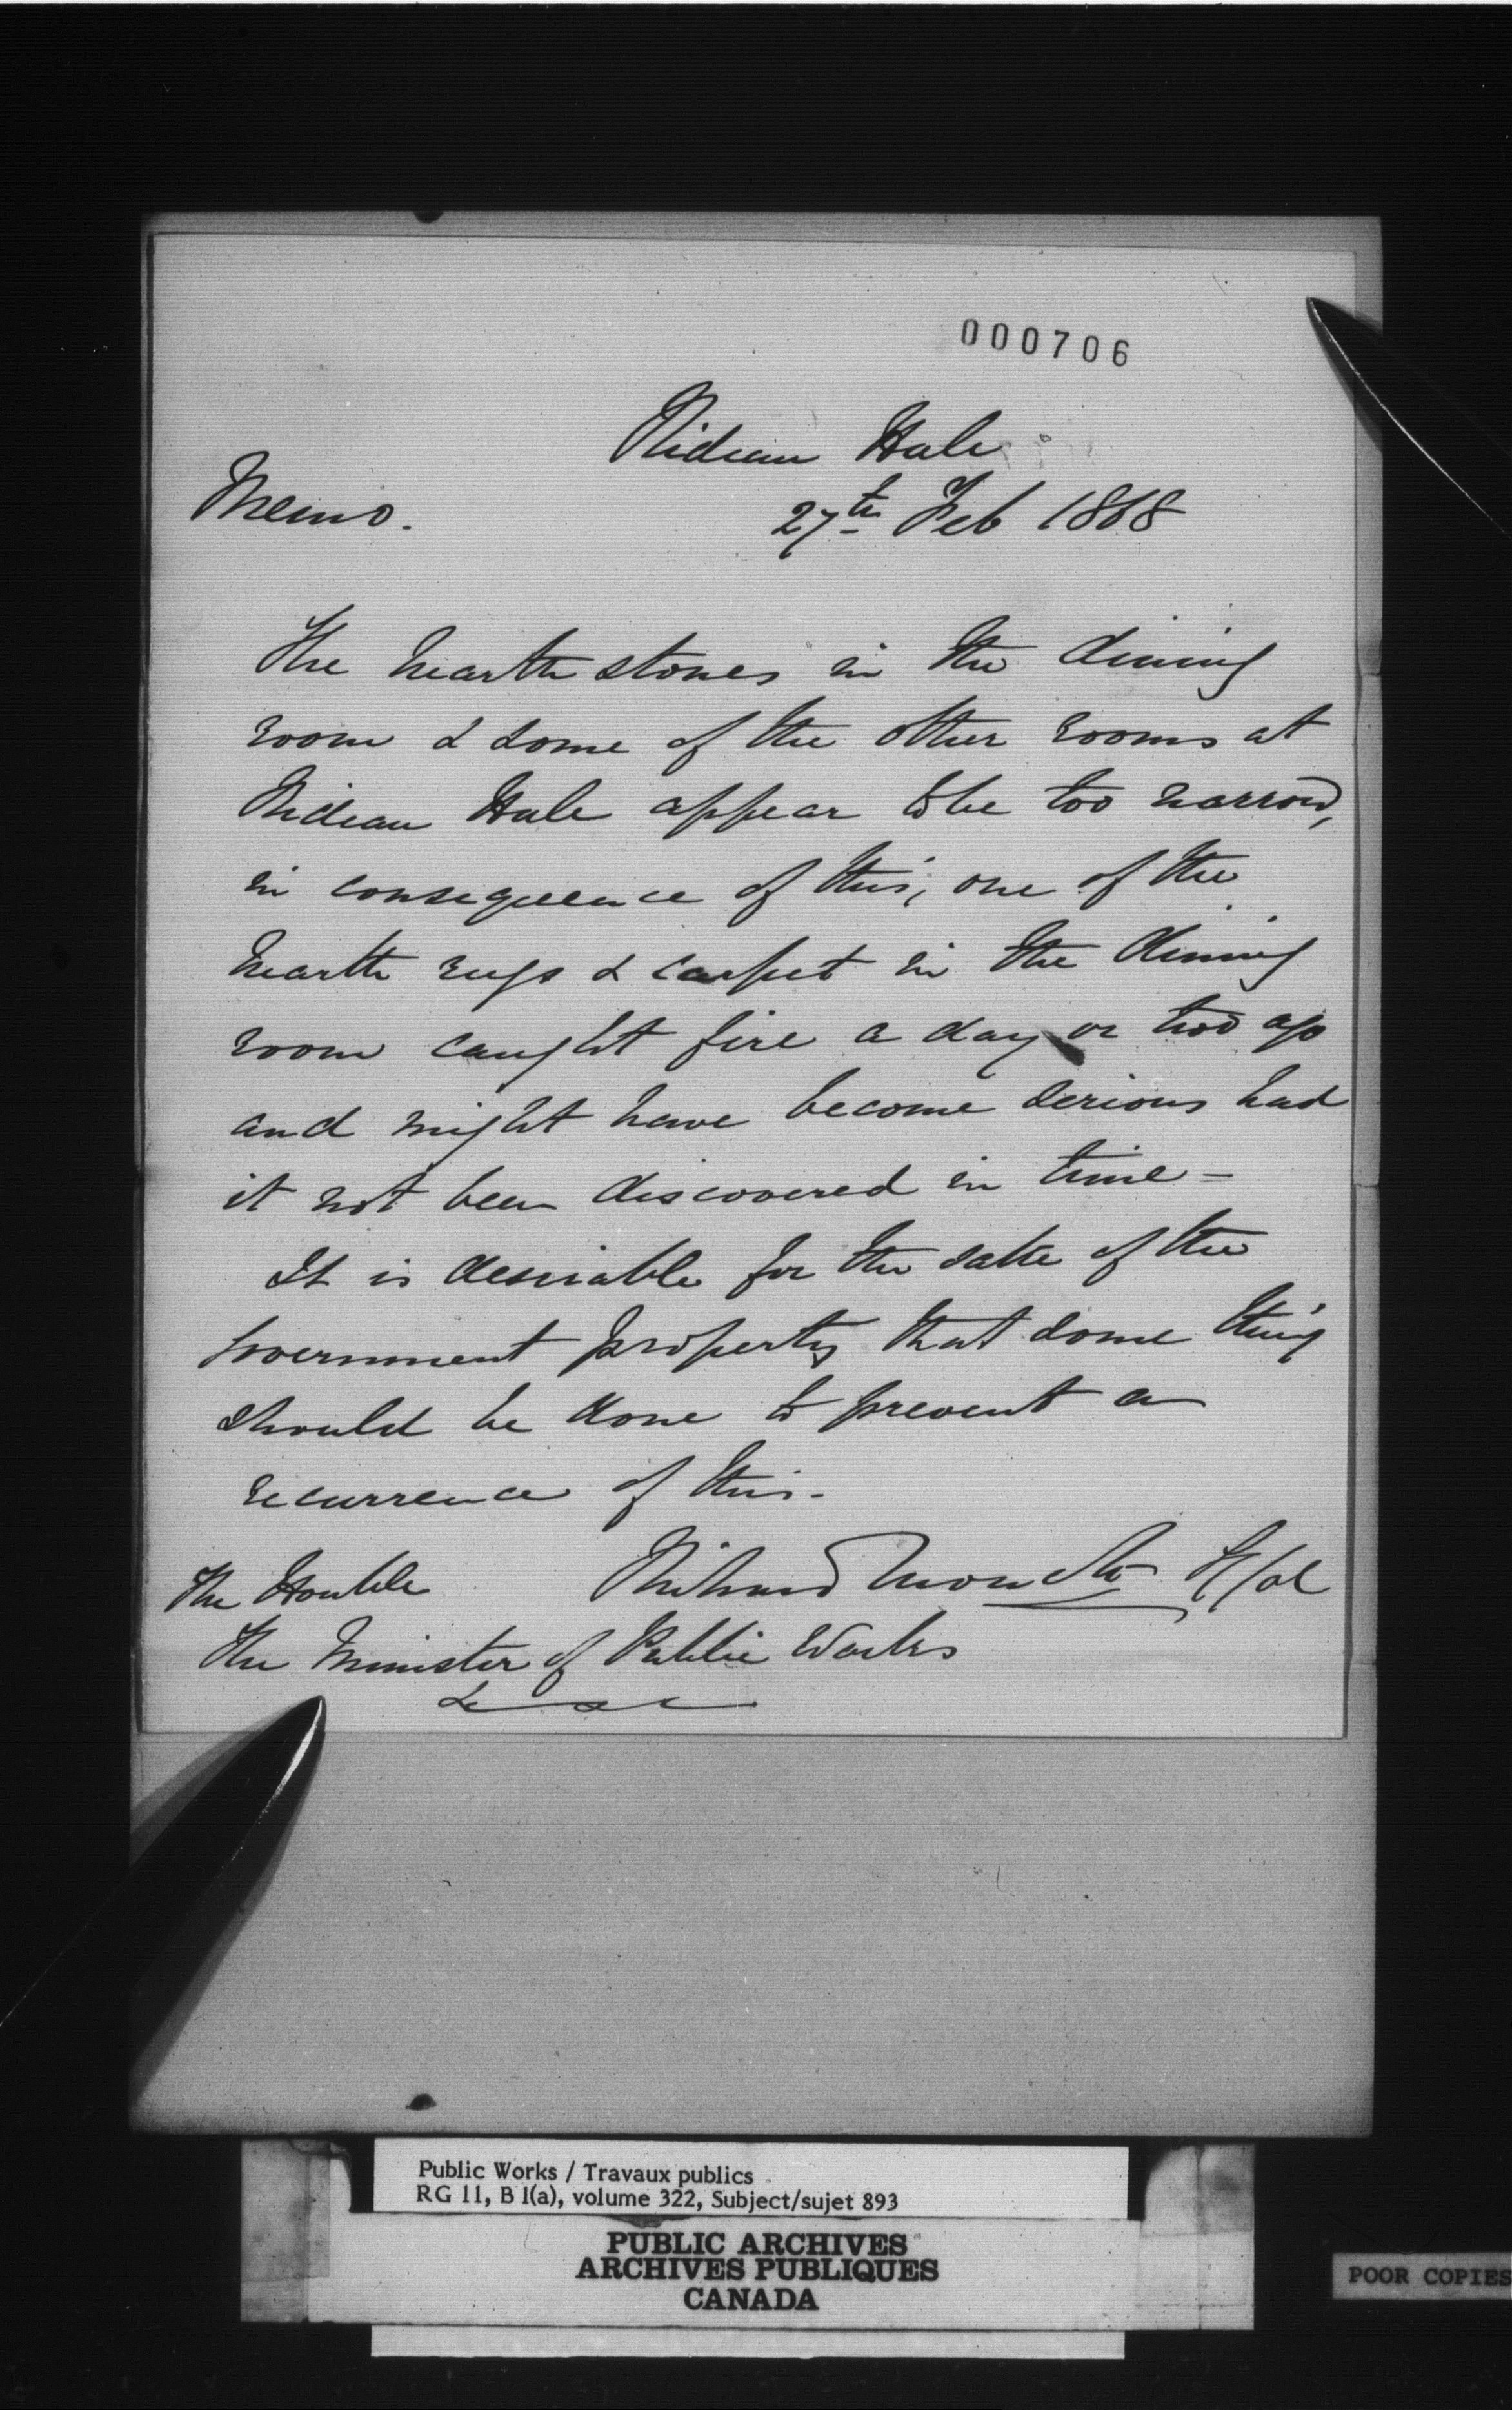 000706
Rideau Hall
Memo.
27th Feb 1868
The hearth stones in the dining
room & some of the other rooms at
Rideau Hall appear to be too narrow,
in consequence of this, one of the
hearth rugs & carpet in the dining
room caught fire a day or two ago
and might have become serious had
it not been discovered in time -
It is desirable for the sake of the
Government property that some thing
should be done to prevent a
recurrence of this -
The Honble
Richard Monck
The Minister of Public Works
&c &c
Public Works / Travaux publics
RG 11, B 1(a), volume 322, Subject/sujet 893
PUBLIC ARCHIVES
ARCHIVES PUBLIQUES
CANADA
POOR COPIES